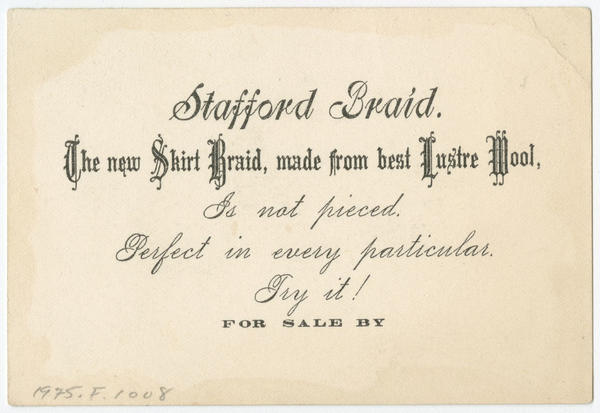 Stafford Braid.
The new Skirt Braid, made from best Lustre Wool,
Is not pieced.
Perfect in every particular.
Try it!
FOR SALE BY
1975.F.1008